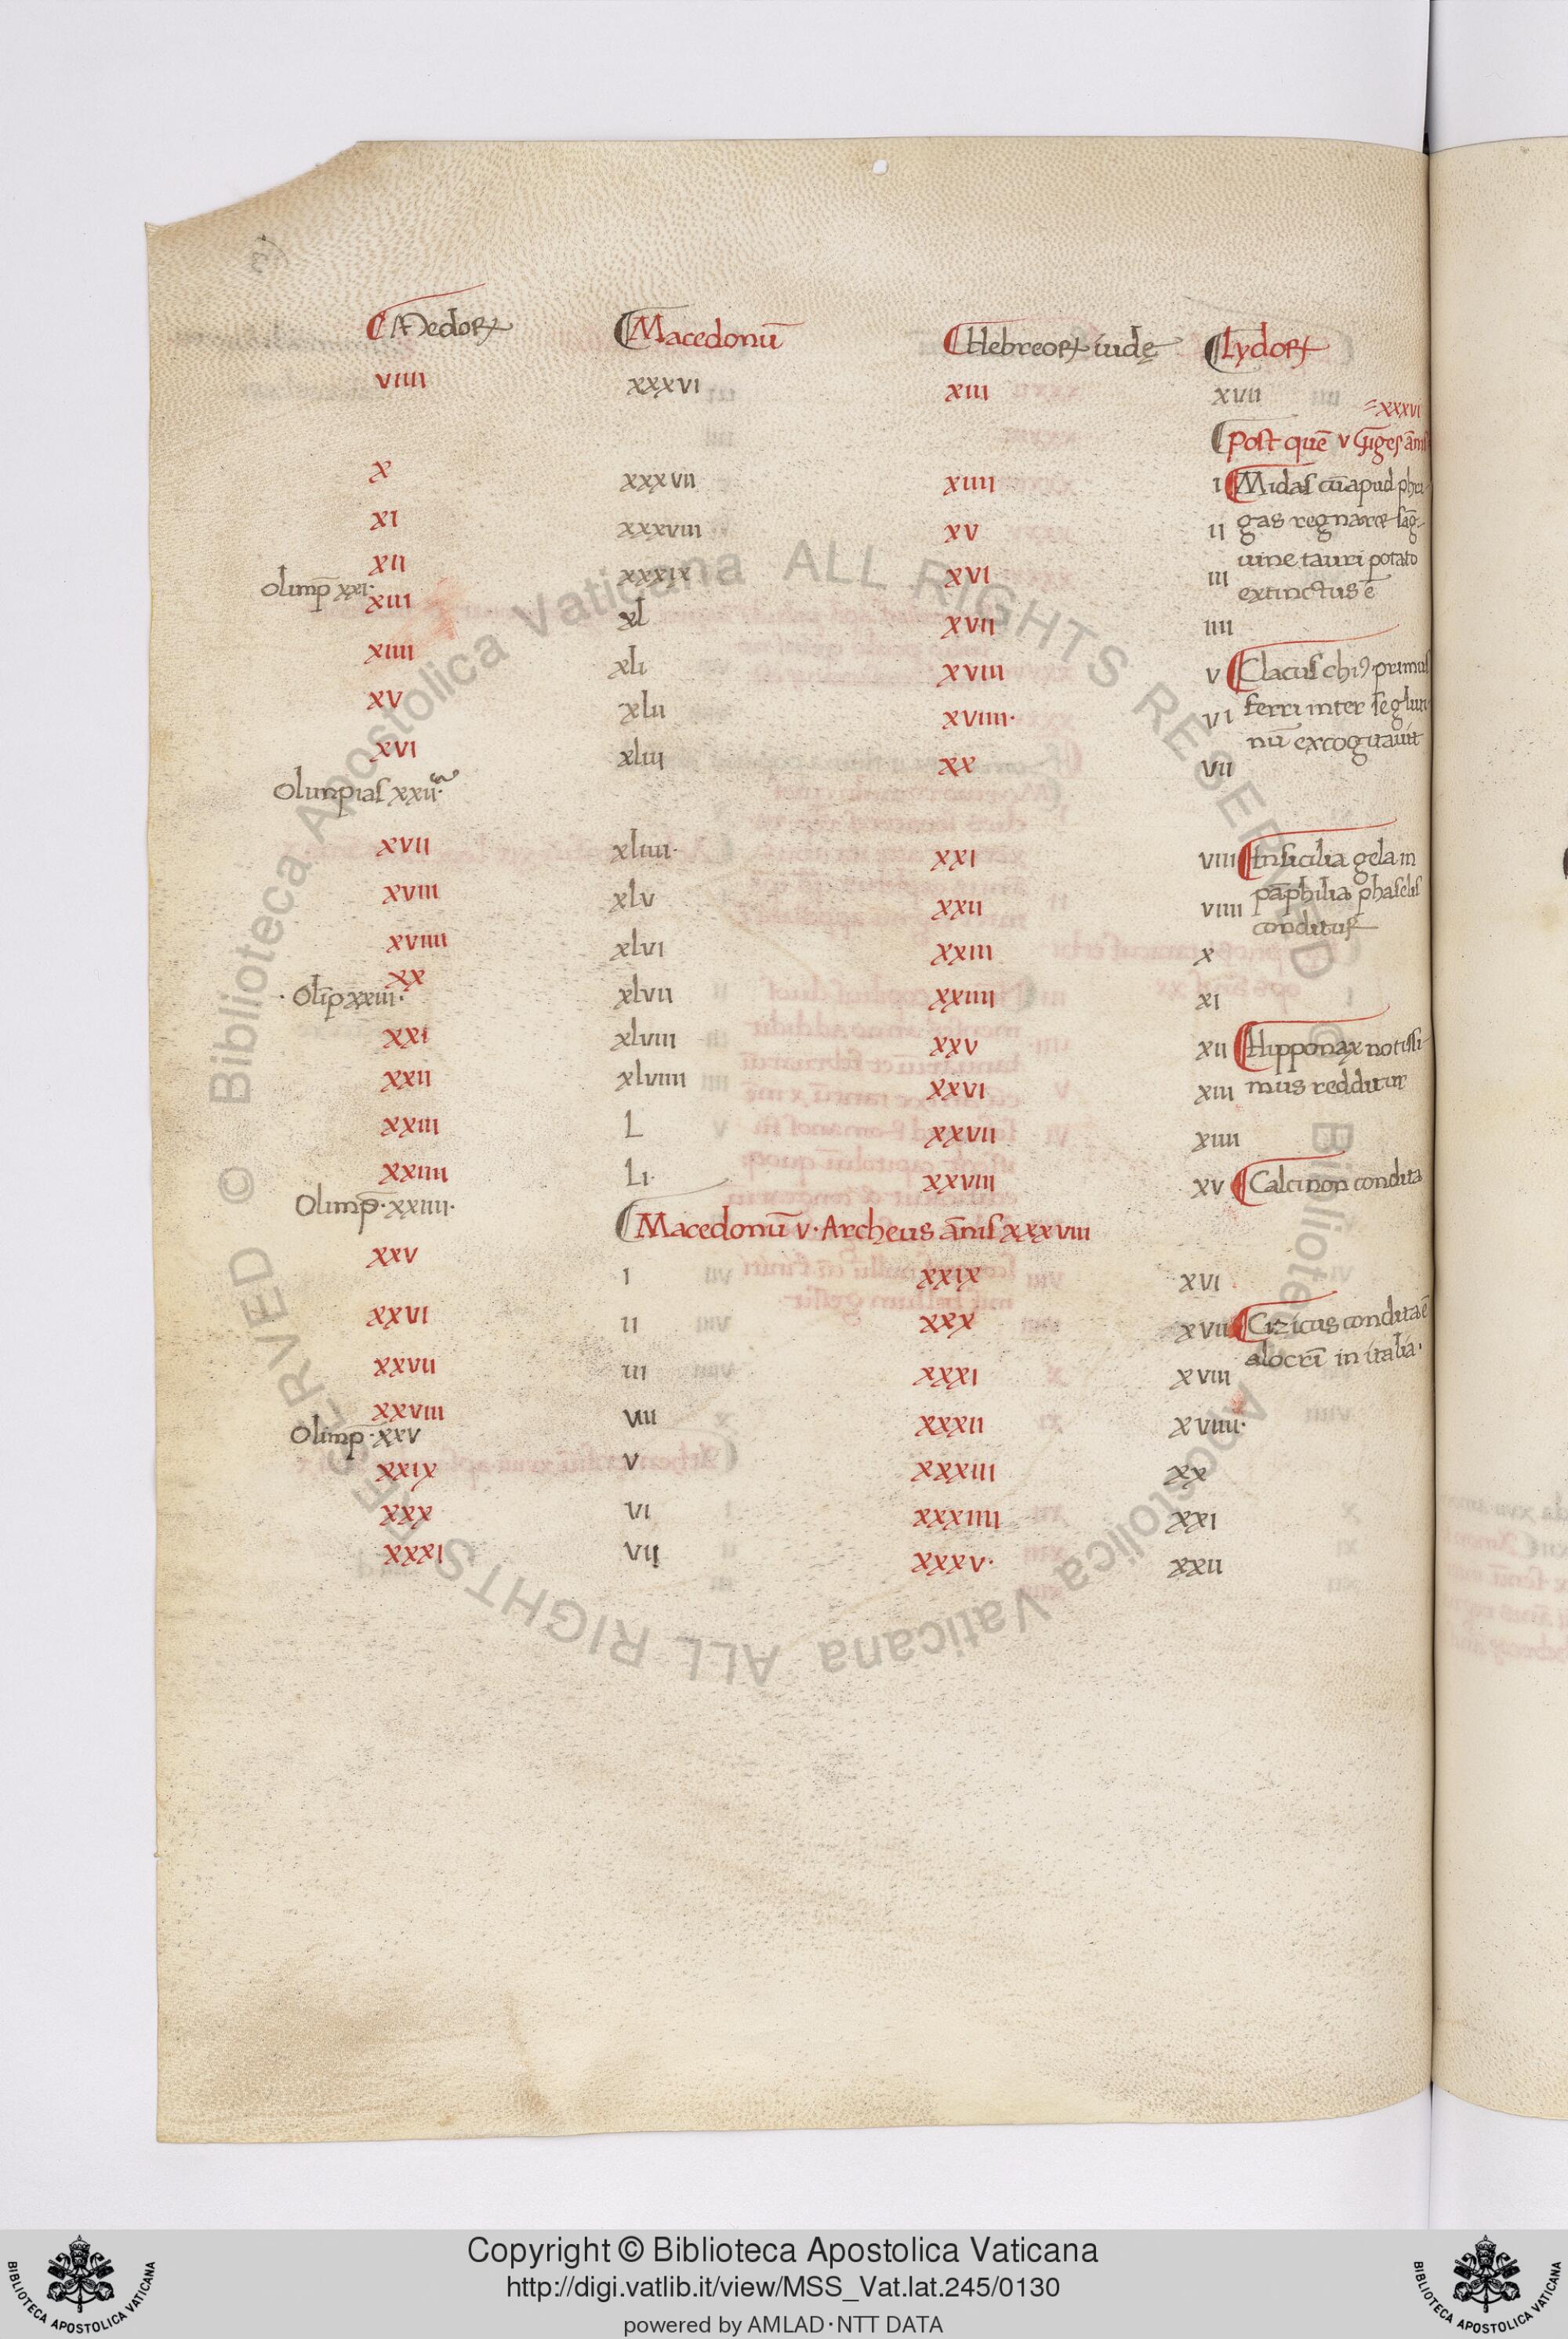 Medoꝝ Macedonū Hebreoꝝ iudę Lydoꝝ
VIIII XXXVI XIII XVII
XXXVI
post quē V Giges ānis
X XXXVII XIIII I Midas cū apud phri
XI XXXVIII XV II gas regnaret sāg
uine tauri potato
XII XXXIX XVI III
extinctus ē
olimp̄ xxi.
XIII XL XVII IIII
XIIII XLI XVIII V Clacus chiꝰ primus
XV XLII XVIIII. VI ferri inter se glut
nū excogitauit
XVI XLIII XX VII
Olimpias xxii.
XVII XLIIII. XXI VIII In sicilia gela in
pāphilia phaselis
XVIII XLV XXII VIIII
conditur
XVIIII XLVI XXIII X
XX XLVII XXIIII XI
. Olīp xxiii.
XXI XLVIII XXV XII Hipponax notissi
XXII XLVIIII XXVI XIII mus redditur
XXIII L XXVII XIIII
XXIIII LI. XXVIII XV Calcinon condita
Olimp̄. xxiiii.
Macedonū V. Archeus ānis XXXVIII
XXV I XXIX XVI
XXVI II XXX XVII Cizicus condita ē
alocri in italia.
XXVII III XXXI XVIII
XXVIII IIII XXXII XVIIII.
Olimp. xxv
XXIX V XXXIII XX
XXX VI XXXIIII XXI
XXXI VII XXXV. XXII
© Biblioteca Apostolica Vaticana ALL RIGHTS RESERVED © Biblioteca Apostolica Vaticana ALL RIGHTS RESERVED
Copyright © Biblioteca Apostolica Vaticana
http://digi.vatlib.it/view/MSS_Vat.lat.245/0130
powered by AMLAD·NTT DATA
BIBLIOTECA APOSTOLICA VATICANA
BIBLIOTECA APOSTOLICA VATICANA